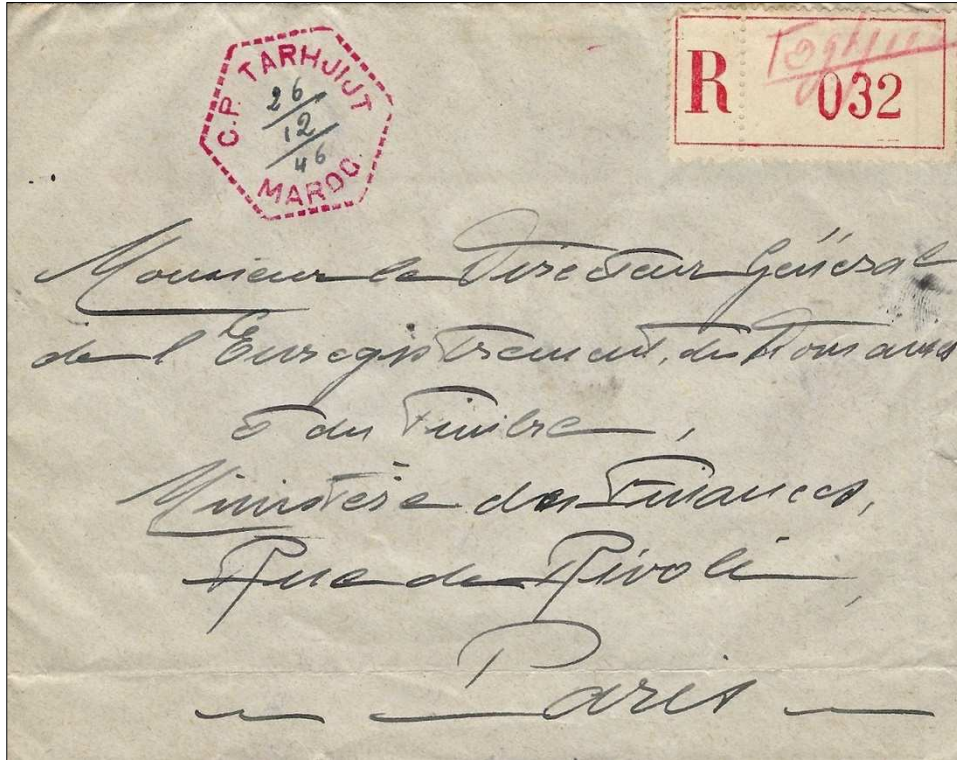 C.P. TARHJIJT
26
12
46
MAROC
R 032
Monsieur le Directeur Général
de l'Enregistrement, des Domaines
et du Timbre,
Ministère des Finances,
Rue de Rivoli,
Paris